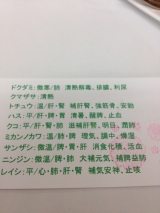 ドクダミ: 微寒/肺 清熱解毒、排膿、利尿
クマザサ: 清熱
トチュウ: 温/肝・腎 補肝腎、強筋骨、安胎
ハス: 平/肝・脾・胃 清暑、醒脾、止血
クコ: 平/肝・腎・肺 滋補肝腎、明目、潤肺
ミカンノカワ: 温/肺・脾 理気、調中、燥湿
サンザシ: 微温/脾・胃・肝 消食化積、活血
ニンジン: 微温/脾・肺 大補元気、補脾益肺
レイシ: 平/心・肺・肝・腎 補気安神、止咳